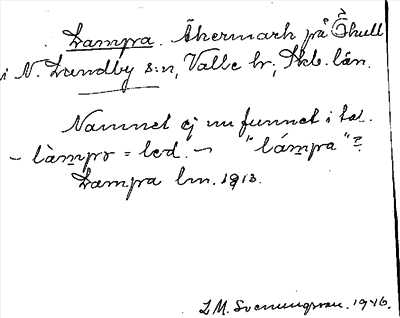 Lampra. Åkermark på Ökull
i N. Lundby s:n, Valle hr; Skb. län.
Namnet ej nu funnet i tal.
- làmpr = led. - "lámpra"?
Lampra lm. 1913.
L.M. Svennungsson. 1946.